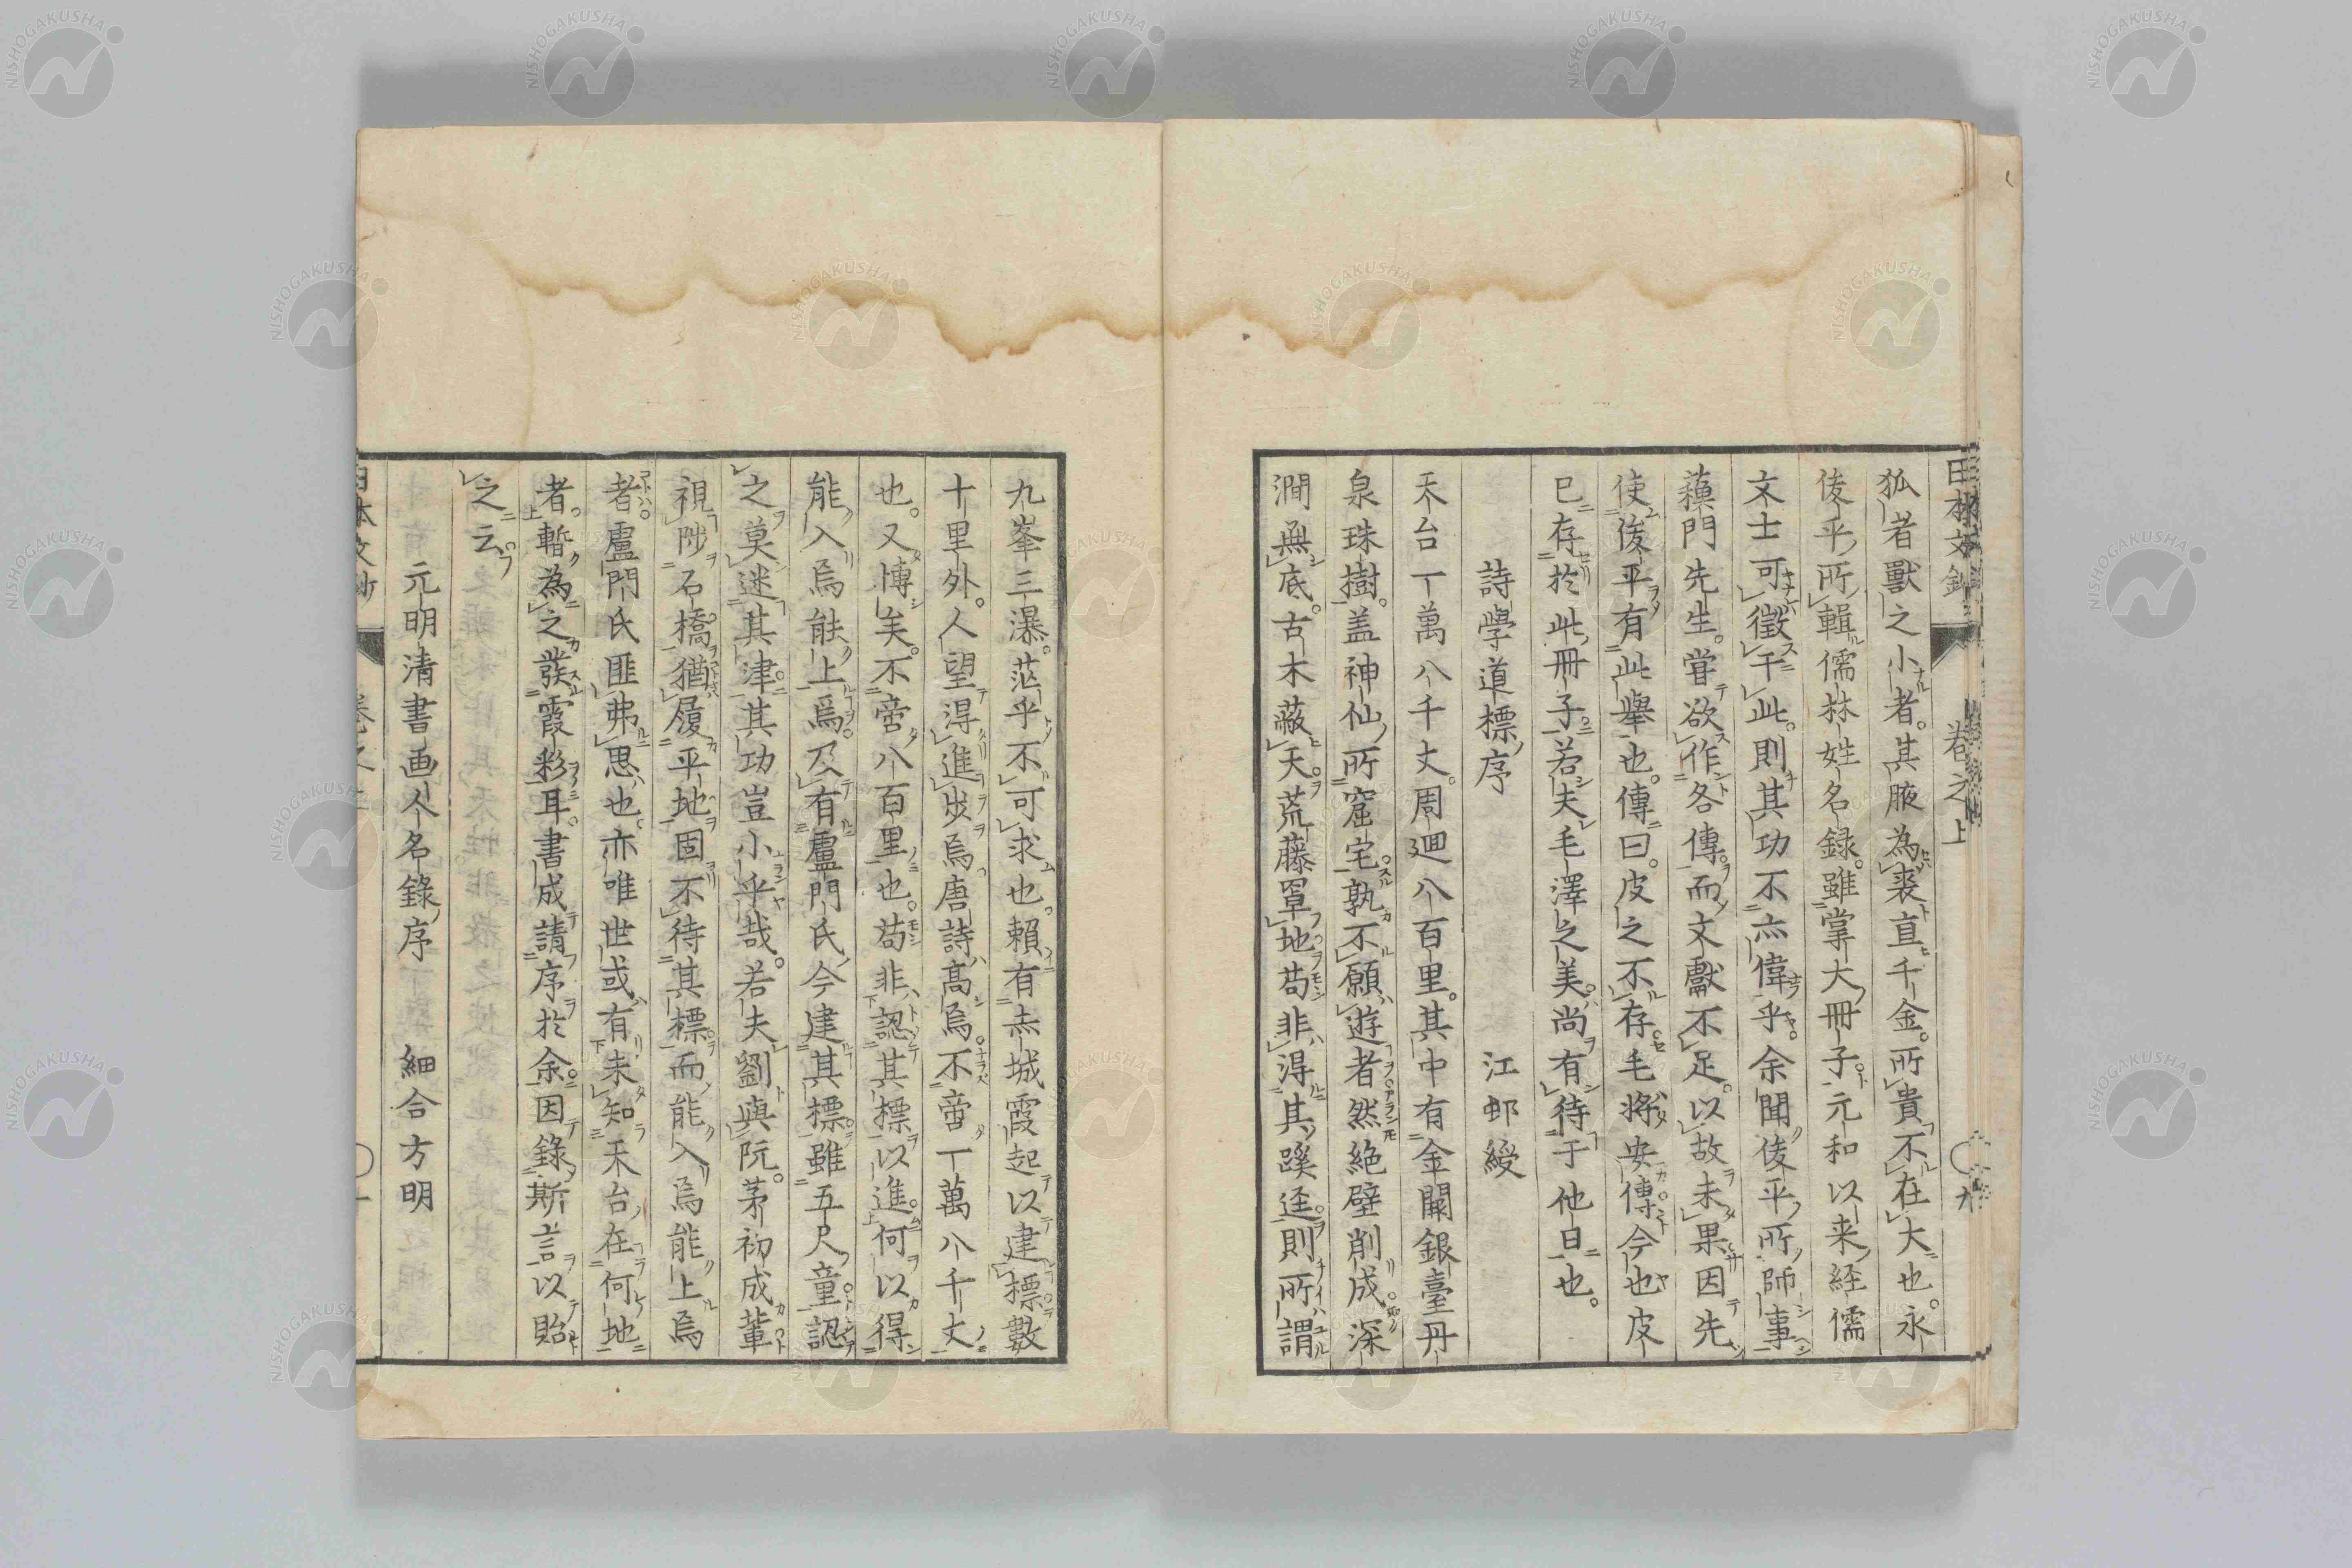 日本文鈔 卷之上 〇九
狐者獸之小者。其腋為裘直千金。所貴不在大也。永
俊平所輯儒林姓名録。雖掌大冊子元和以来經儒
文士可徵于此。則其功不亦偉乎。余聞俊平所師事
蘐門先生。嘗欲作各傳。而文獻不足。以故未果因先
使俊平有此舉也。傳曰。皮之不存。毛将安傳今也皮
已存於此冊子。若夫毛澤之美。尚有待于他日也。
詩學道標序 江邨綬
天台一萬八千丈。周迴八百里。其中有金闕銀臺丹
泉珠樹。盖神仙所窟宅。孰不願遊者然絶壁削成。深
澗無底。古木蔽天。荒藤罩地苟非得其蹊逕。則所謂
九峯三瀑。茫乎不可求也。賴有赤城霞起以建標數
十里外。人望得進。出焉唐詩髙焉。不啻一萬八千丈
也。又博矣。不啻八百里也。苟非認其標以進。何以得
能入焉能上焉。及有盧門氏今建其標。雖五尺童認
之莫迷其津。其功豈小乎哉。若夫劉與阮。茅初成輩
視陟石橋。猶履平地。固不待其標。而能入焉能上焉
者。盧門氏匪弗思也。亦唯世或有未知天台在何地
者。暫為之發霞彩耳。書成請序於余。因錄斯言以貽
之云。
元明清書画人名錄序 細合方明